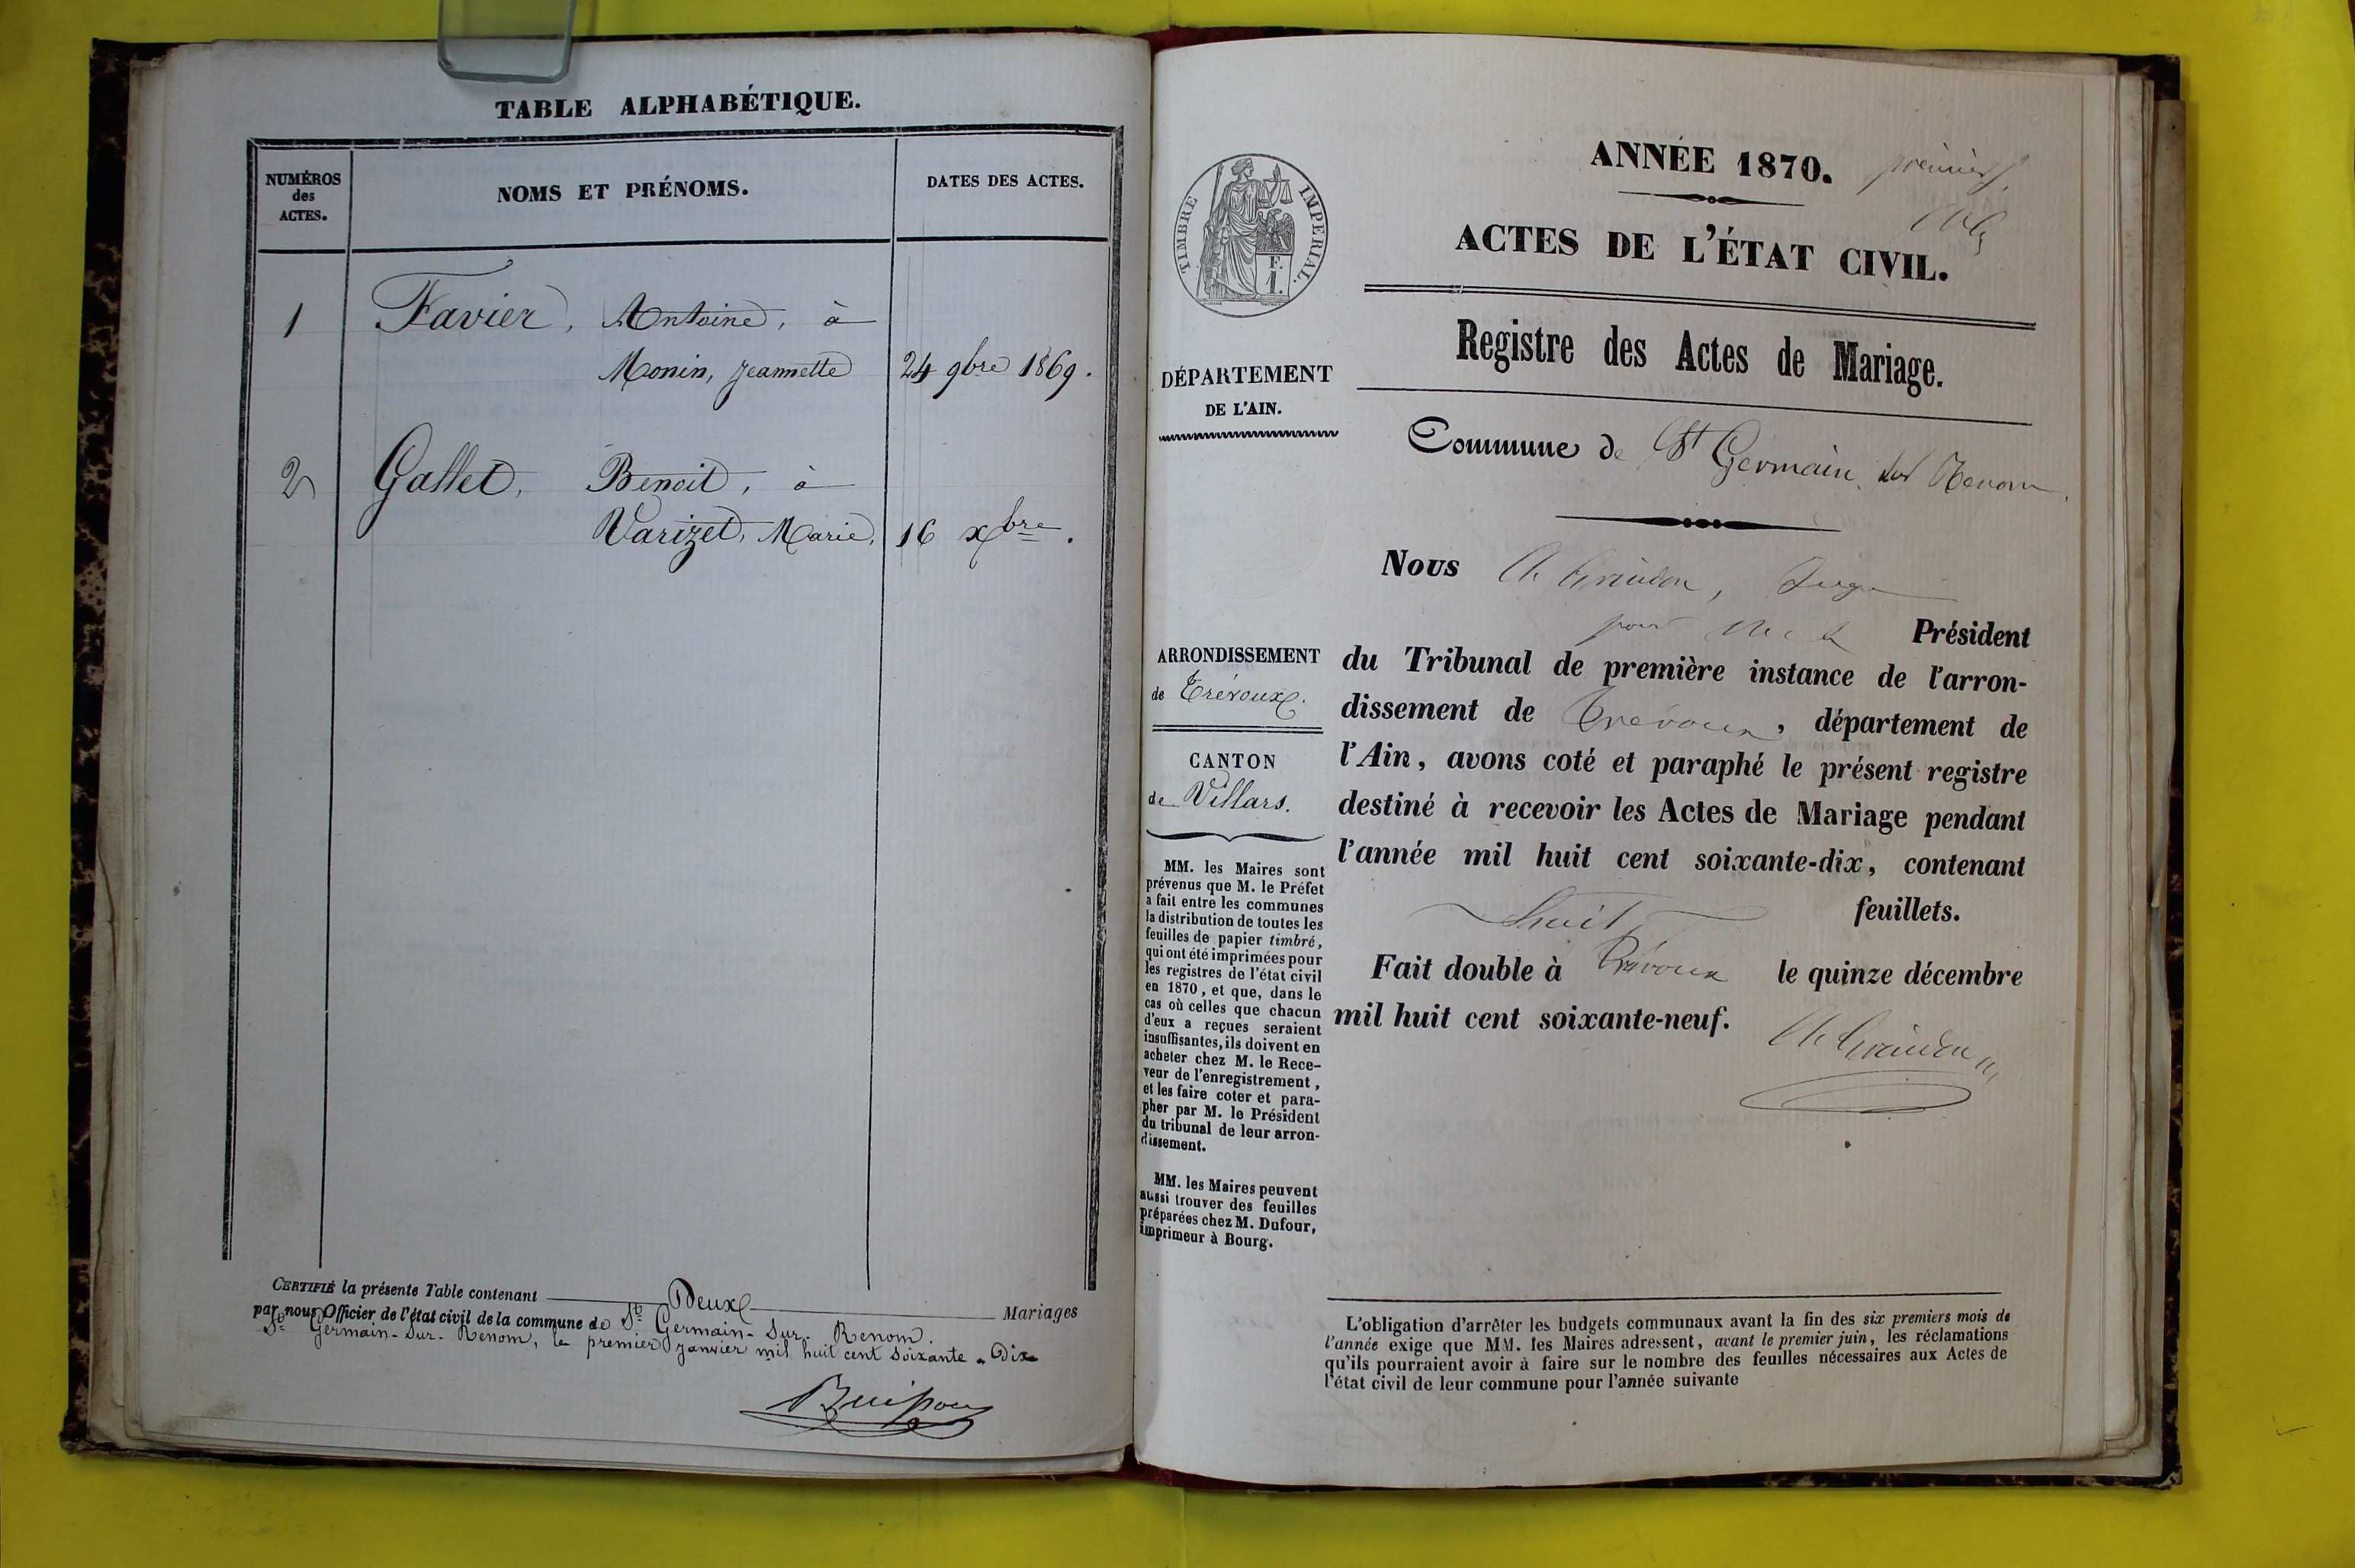 TABLE ALPHABÉTIQUE.
NUMÉROS
des
ACTES.
NOMS ET PRÉNOMS.
DATES DES ACTES.
1 Favier, Antoine, à
Monin, Jeannette 24 9bre 1869.
2 Gallet, Benoit, à
Varizet, Marie, 16 xbre.
CERTIFIÉ la présente Table contenant Deux Mariages
par nous Officier de l'état civil de la commune de St Germain-Sur-Renom.
St Germain-Sur-Renom, le premier janvier mil huit cent soixante-Dix
ANNÉE 1870. premier
ACTES DE L'ÉTAT CIVIL.
TIMBRE IMPERIAL.
F.
1.
Registre des Actes de Mariage.
DÉPARTEMENT
DE L'AIN.
Commune de St Germain sur Renom.
Nous
Président
ARRONDISSEMENT
de Trévoux.
CANTON
de Villars.
du Tribunal de première instance de l'arron-
dissement de Trévoux, département de
l'Ain, avons coté et paraphé le présent registre
destiné à recevoir les Actes de Mariage pendant
l'année mil huit cent soixante-dix, contenant
huit feuillets.
Fait double à Trévoux le quinze décembre
mil huit cent soixante-neuf.
MM. les Maires sont
prévenus que M. le Préfet
a fait entre les communes
la distribution de toutes les
feuilles de papier timbré,
qui ont été imprimées pour
les registres de l'état civil
en 1870, et que, dans le
cas où celles que chacun
d'eux a reçues seraient
insuffisantes, ils doivent en
acheter chez M. le Rece-
veur de l'enregistrement,
et les faire coter et para-
pher par M. le Président
du tribunal de leur arron-
dissement.
MM. les Maires peuvent
aussi trouver des feuilles
préparées chez M. Dufour,
imprimeur à Bourg.
L'obligation d'arrêter les budgets communaux avant la fin des six premiers mois de
l'année exige que MM. les Maires adressent, avant le premier juin, les réclamations
qu'ils pourraient avoir à faire sur le nombre des feuilles nécessaires aux Actes de
l'état civil de leur commune pour l'année suivante